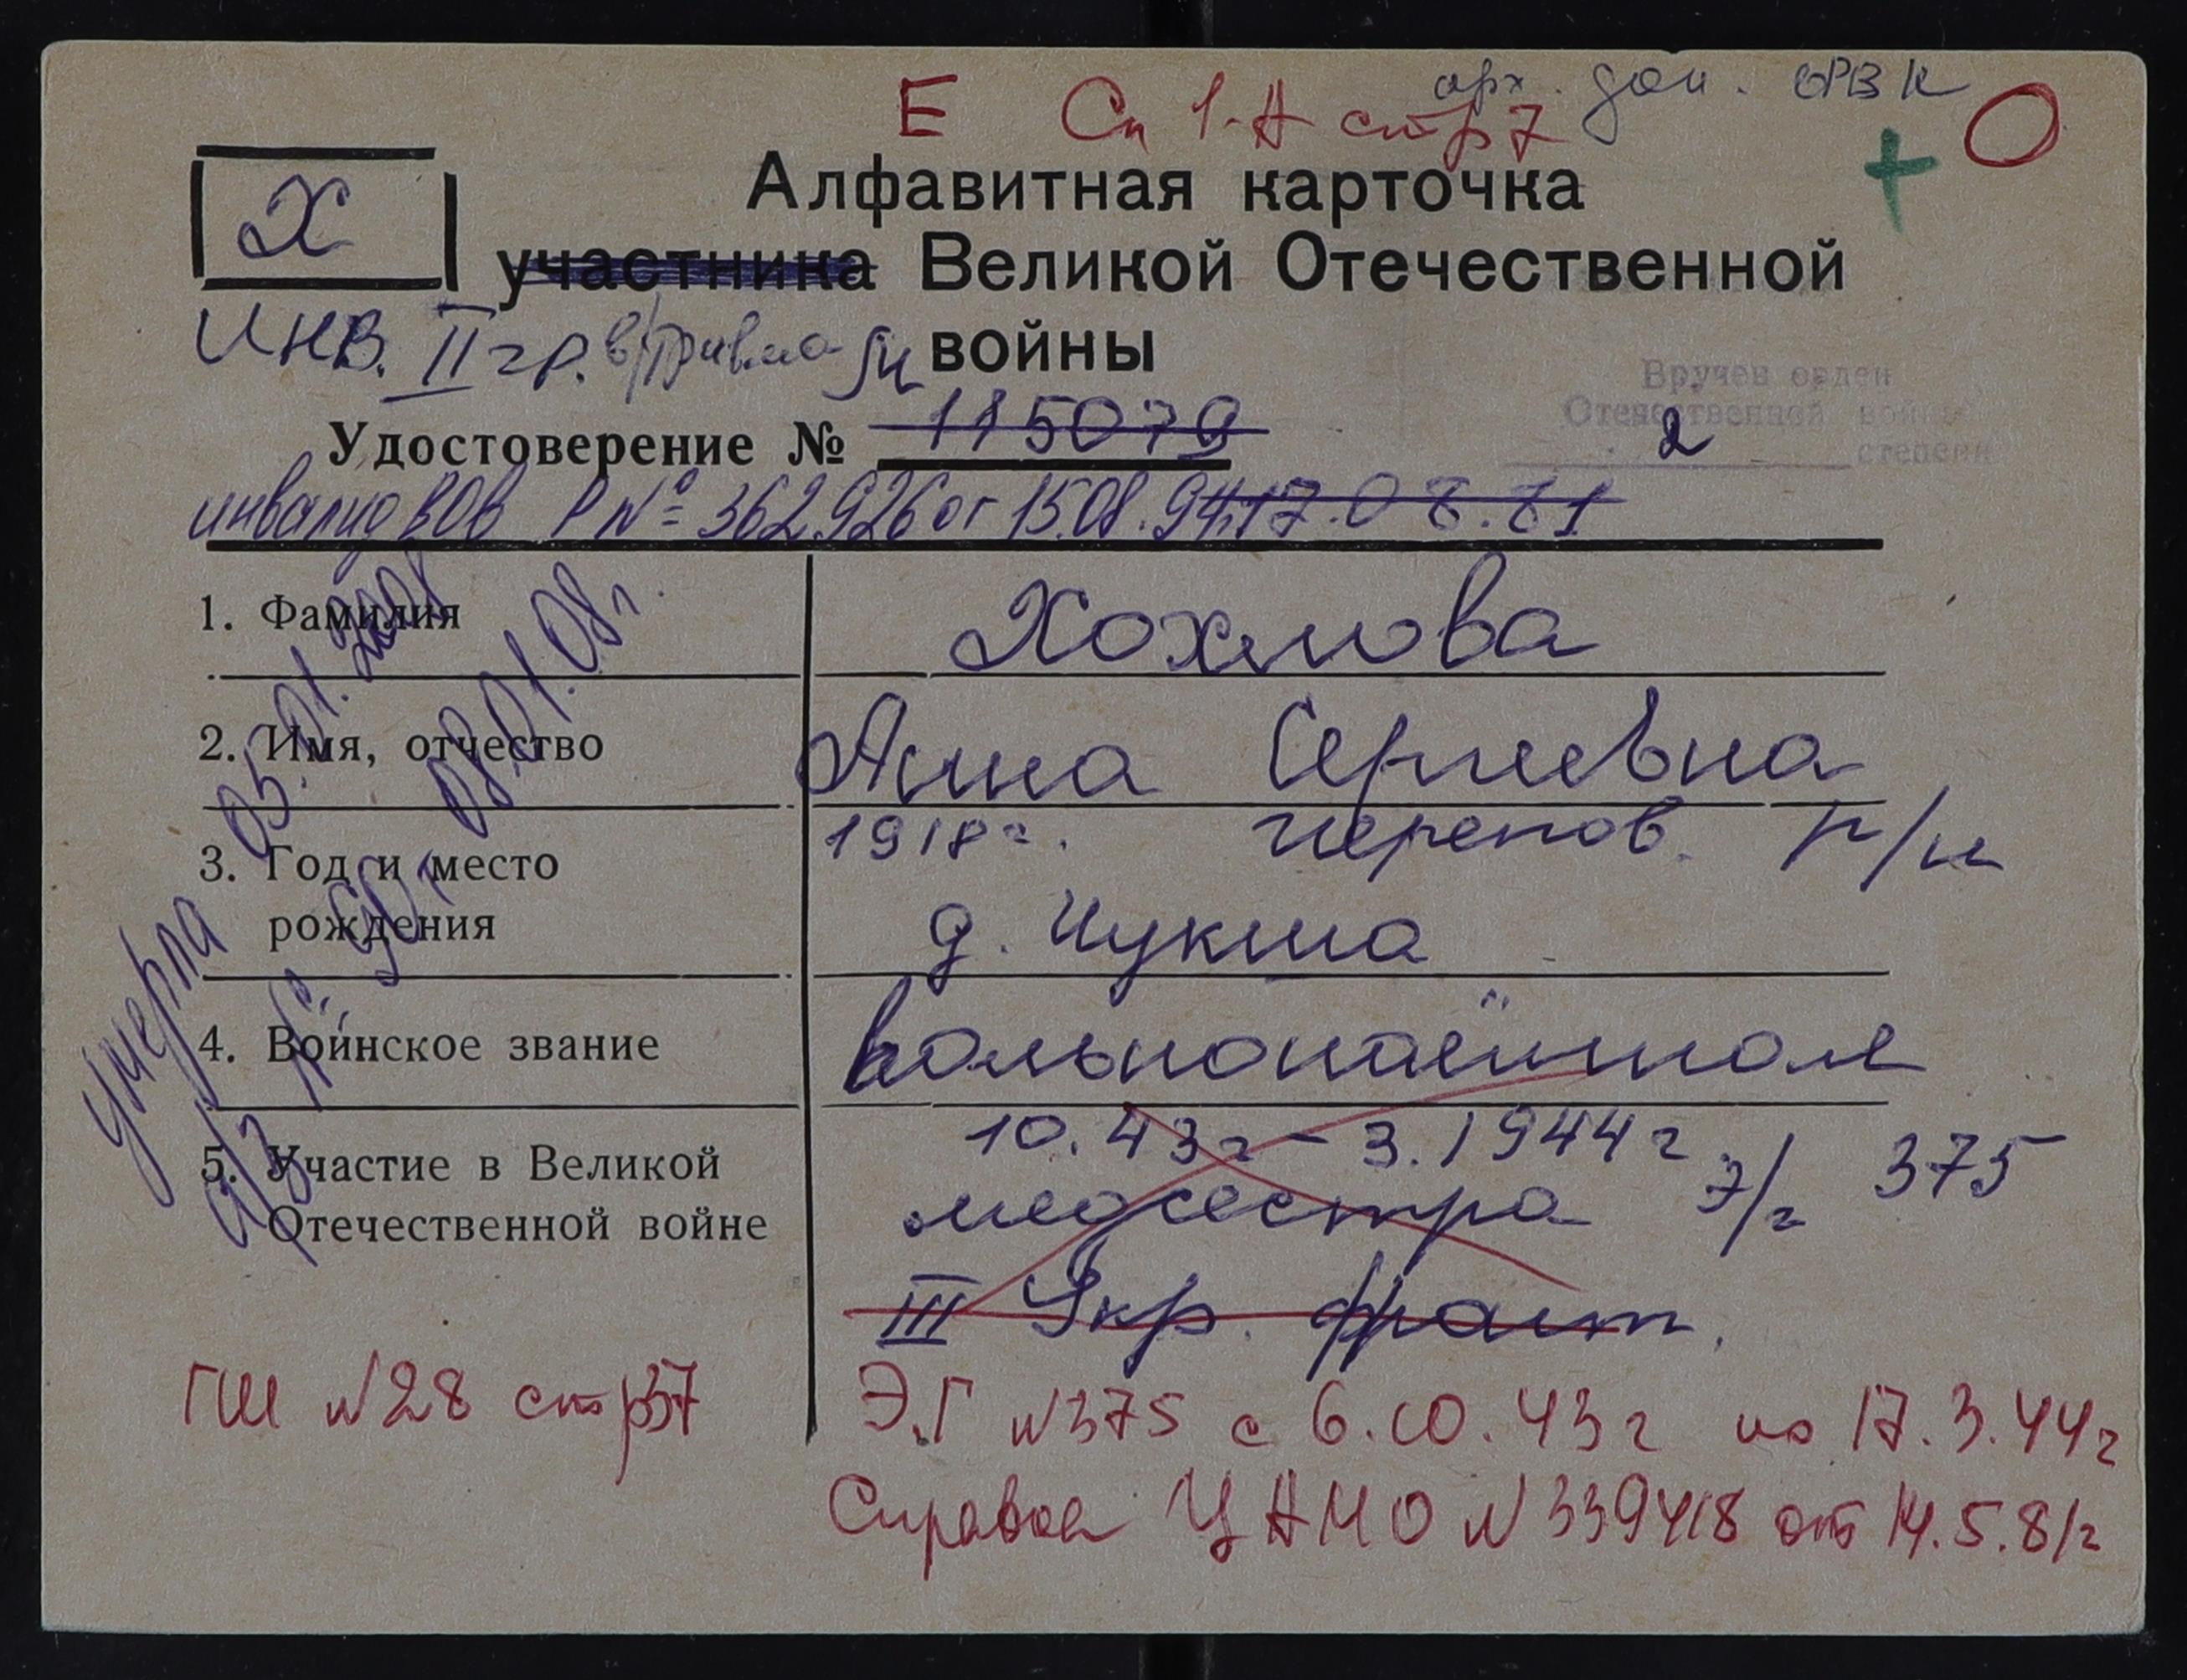 арх. дон. ОРВК
Е Сп 1-А стр 7 О
+
Х
Алфавитная карточка
участника Великой Отечественной
войны
Инв. II гр.
Вручен орден
Отечественной войны
2 степени
Удостоверение № 115079
инвалид ВОв Р № 362926 от 15.08.94 17.08.81
1. Фамилия Хохлова
2. Имя, отчество Анна Сергеевна
3. Год и место рождения 1918 г. Черепов. р/н
д. Чукша
4. Воинское звание вольнонаёмная
5. Участие в Великой Отечественной войне 10.43г – 3.1944г
медсестра э/г 375
III Укр. фронт.
Умерла 05.01.2008
а/з № 90 08.01.08г.
ГШ №28 стр37
Э.Г №375 с 6.10.43г по 17.3.44г
Справка ЦАМО №339418 от 14.5.81г